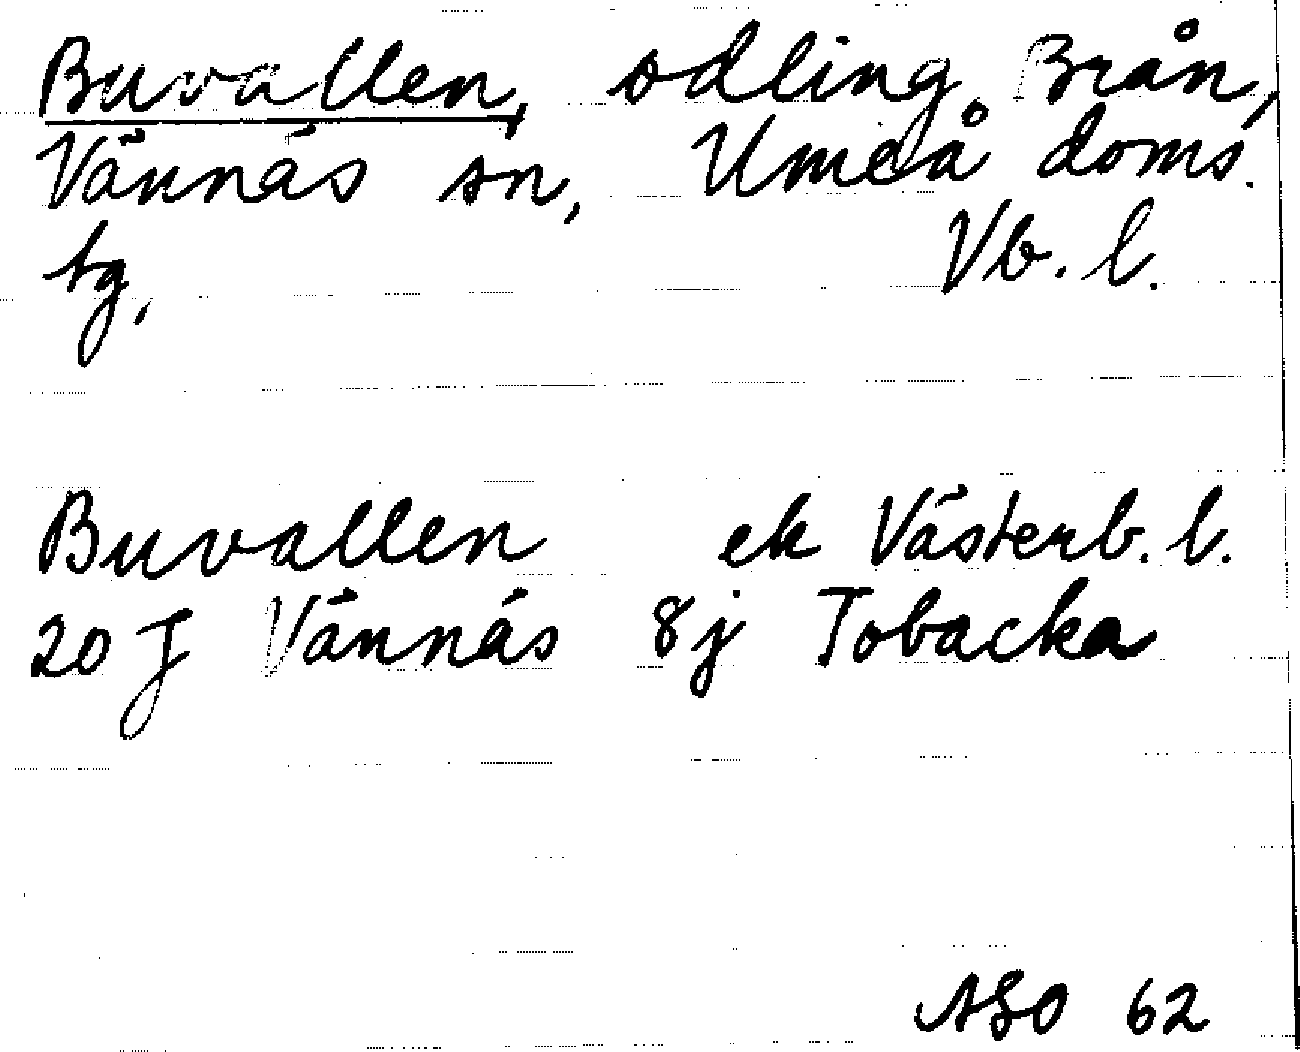 Buvallen, odling, Brån,
Vännäs sn, Umeå doms.
tg, Vb. l.
Buvallen ek Västerb. l.
20 J Vännäs 8j Tobacka
ASO 62